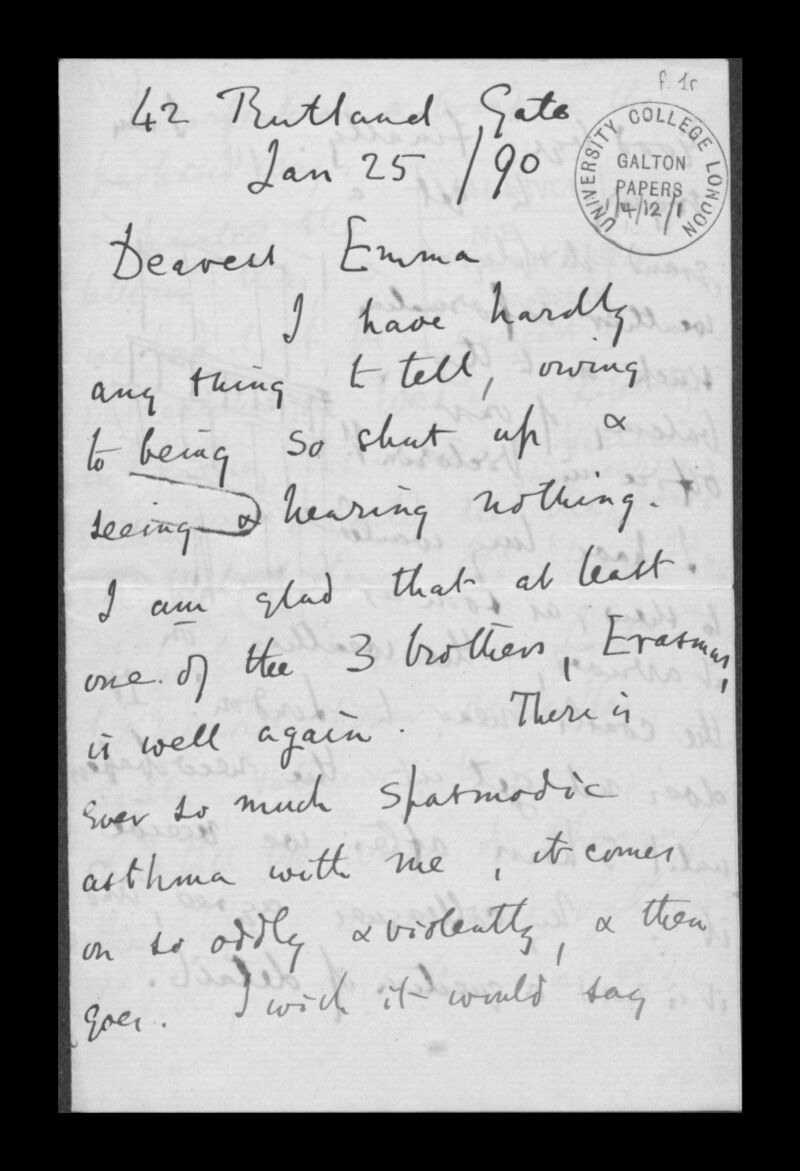 f. 1r
42 Rutland Gate
Jan 25 /90
UNIVERSITY COLLEGE LONDON
GALTON
PAPERS
1/4/12/1
Dearest Emma
I have hardly
any thing to tell, owing
to being so shut up &
seeing & hearing nothing.
I am glad that at least
one of the 3 brothers, Erasmus,
is well again. There is
ever so much spasmodic
asthma with me, it comes
on so oddly & violently, & then
goes. I wish it would say